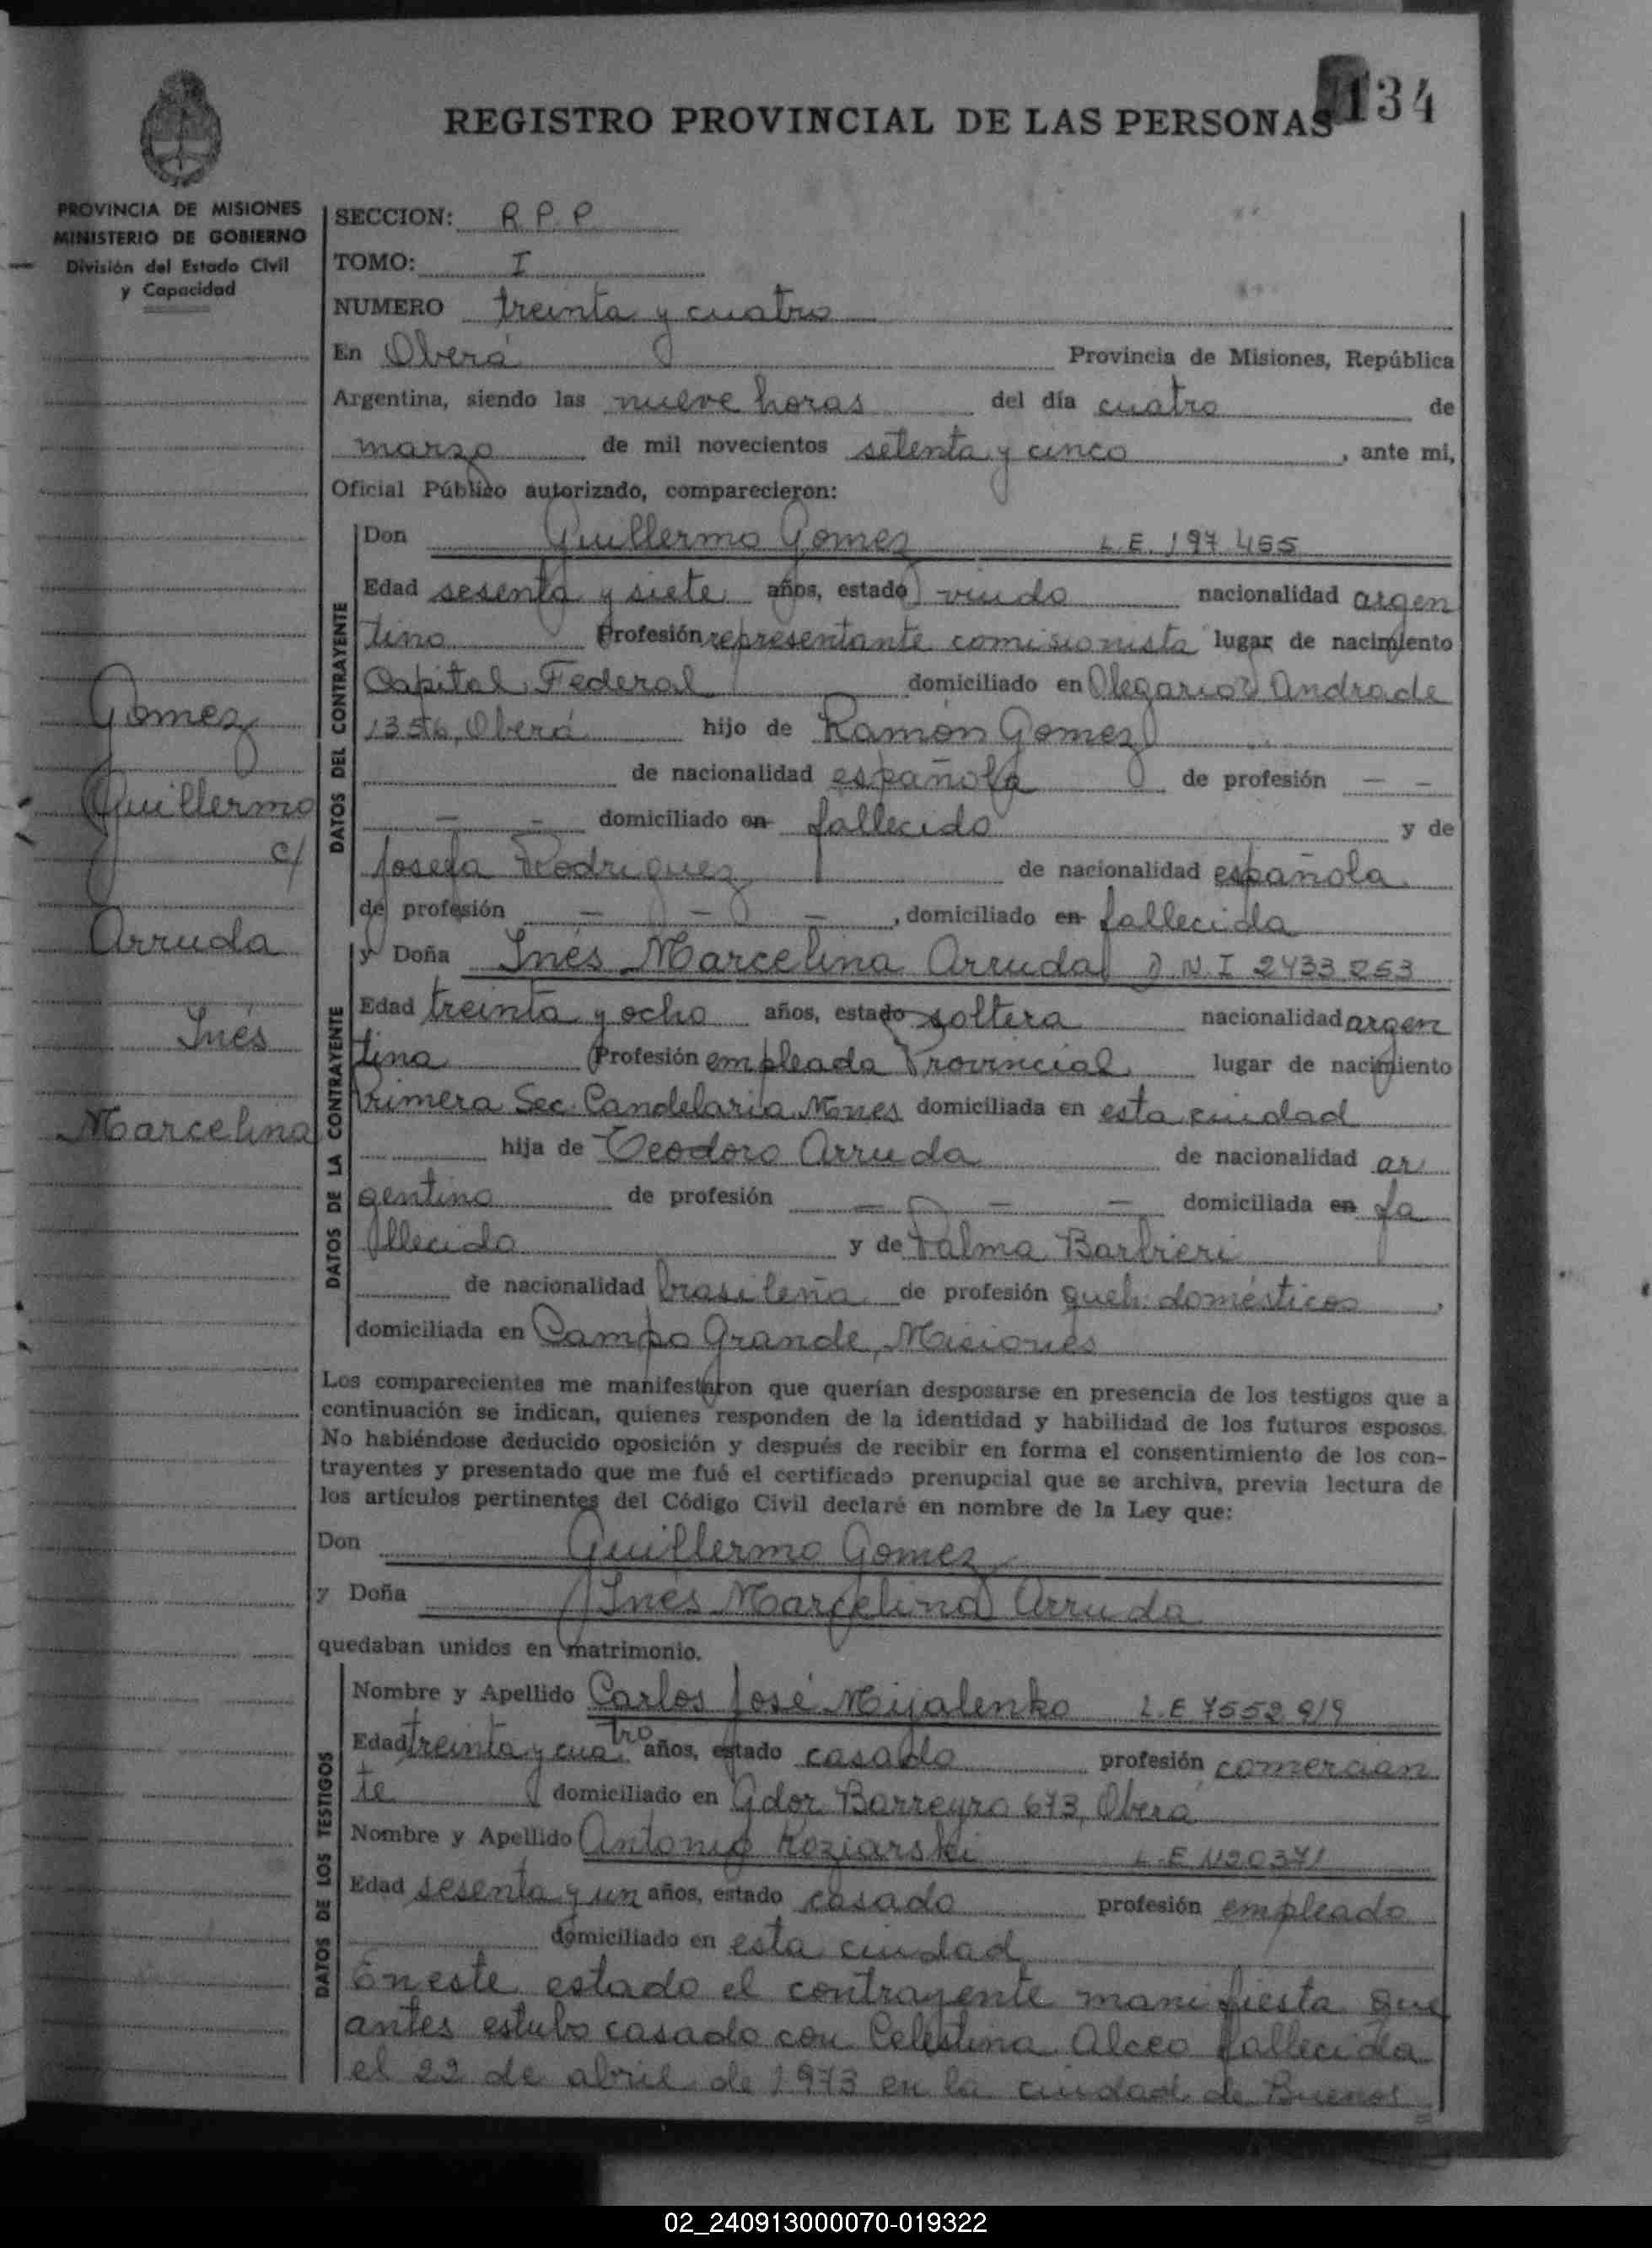 134
REGISTRO PROVINCIAL DE LAS PERSONAS
PROVINCIA DE MISIONES
MINISTERIO DE GOBIERNO
División del Estado Civil
y Capacidad
Gomez
Guillermo
c/
Arruda
Inés
Marcelina
SECCION: R.P.P
TOMO: I
NUMERO treinta y cuatro
En Oberá Provincia de Misiones, República
Argentina, siendo las nueve horas del día cuatro de
marzo de mil novecientos setenta y cinco, ante mi,
Oficial Público autorizado, comparecieron:
DATOS DEL CONTRAYENTE
Don Guillermo Gomez L.E. 197.455
Edad sesenta y siete años, estado viudo nacionalidad argen
tino Profesión representante comisionista lugar de nacimiento
Capital Federal domiciliado en Olegario V Andrade
1356, Oberá hijo de Ramón Gomez
de nacionalidad española de profesión — —
— — domiciliado en fallecido y de
Josefa Rodriguez de nacionalidad española
de profesión — — —, domiciliado en fallecida
DATOS DE LA CONTRAYENTE
y Doña Inés Marcelina Arruda D.N.I 2433253
Edad treinta y ocho años, estado soltera nacionalidad argen
tina Profesión empleada Provincial lugar de nacimiento
Primera Sec. Candelaria Mnes domiciliada en esta ciudad
hija de Teodoro Arruda de nacionalidad ar
gentino de profesión — — — domiciliada en fa
llecido y de Palma Barbieri
de nacionalidad brasileña de profesión queh. domésticos,
domiciliada en Campo Grande, Misiones
Los comparecientes me manifestaron que querían desposarse en presencia de los testigos que a
continuación se indican, quienes responden de la identidad y habilidad de los futuros esposos.
No habiéndose deducido oposición y después de recibir en forma el consentimiento de los con-
trayentes y presentado que me fué el certificado prenupcial que se archiva, previa lectura de
los artículos pertinentes del Código Civil declaré en nombre de la Ley que:
Don Guillermo Gomez
y Doña Inés Marcelina Arruda
quedaban unidos en matrimonio.
DATOS DE LOS TESTIGOS
Nombre y Apellido Carlos José Mijalenko L.E 7552919
Edad treinta y cuatro años, estado casado profesión comercian
te domiciliado en Gdor. Barreyro 673, Oberá
Nombre y Apellido Antonio Koziarski L.E
Edad sesenta y un años, estado casado profesión empleado
domiciliado en esta ciudad
En este estado el contrayente manifiesta que
antes estubo casado con Celestina Alceo fallecida
el 22 de abril de 1973 en la ciudad de Buenos
02_240913000070-019322